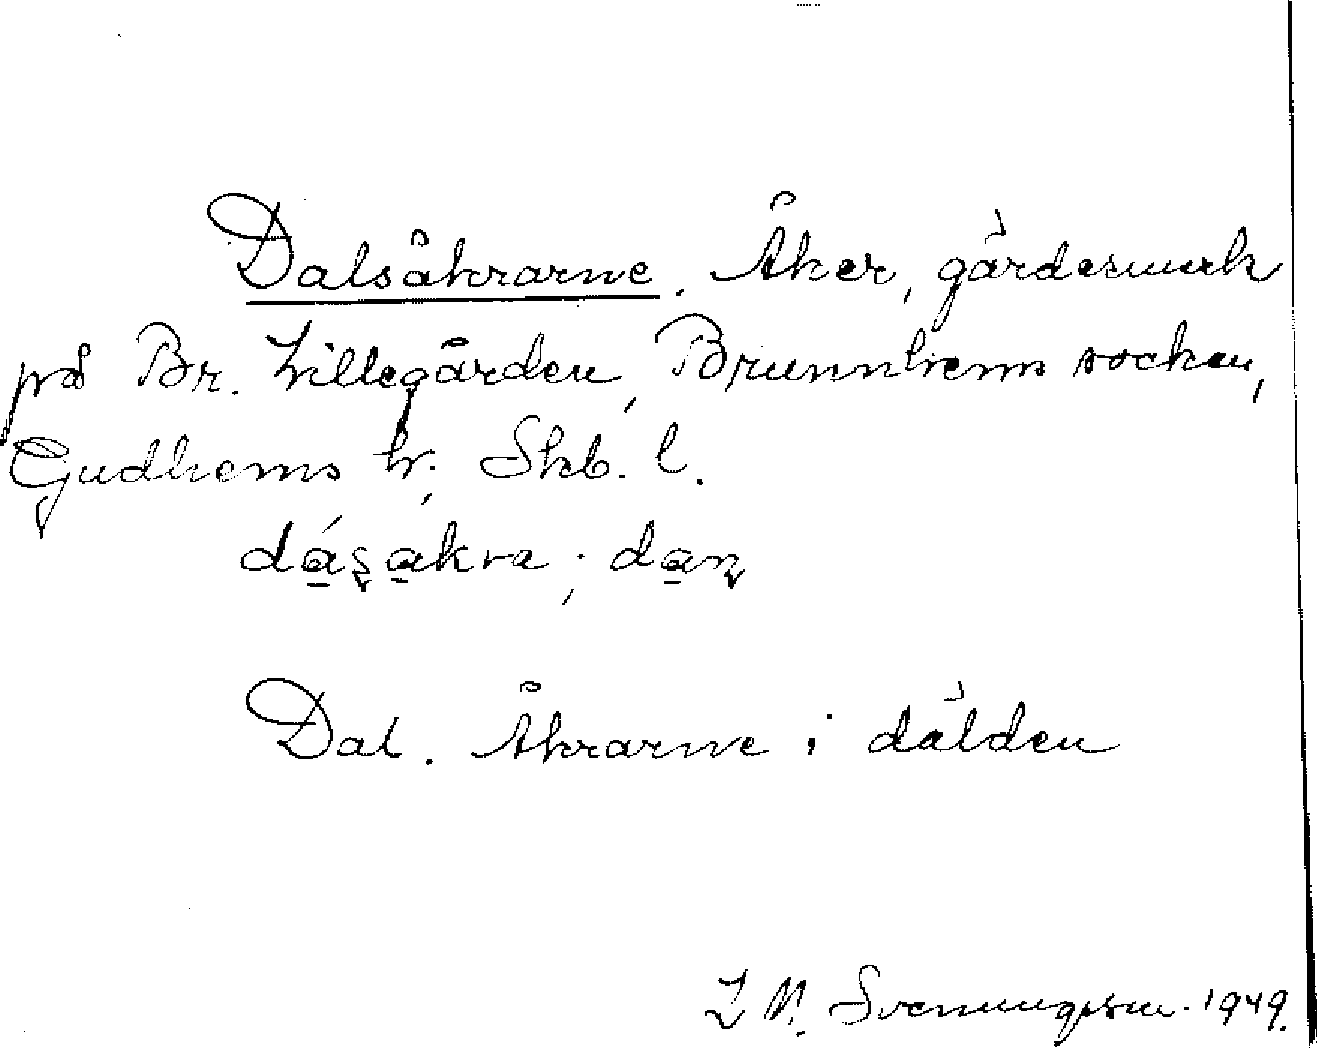 Dalsåkrarne. Åker, gärdesmark
på Br. Lillegården, Brunnhems socken,
Gudhems hr. Skb. l.
dása̱kra; da̱n
Dal. Åkrarne i dälden
Svenungsson 1949.